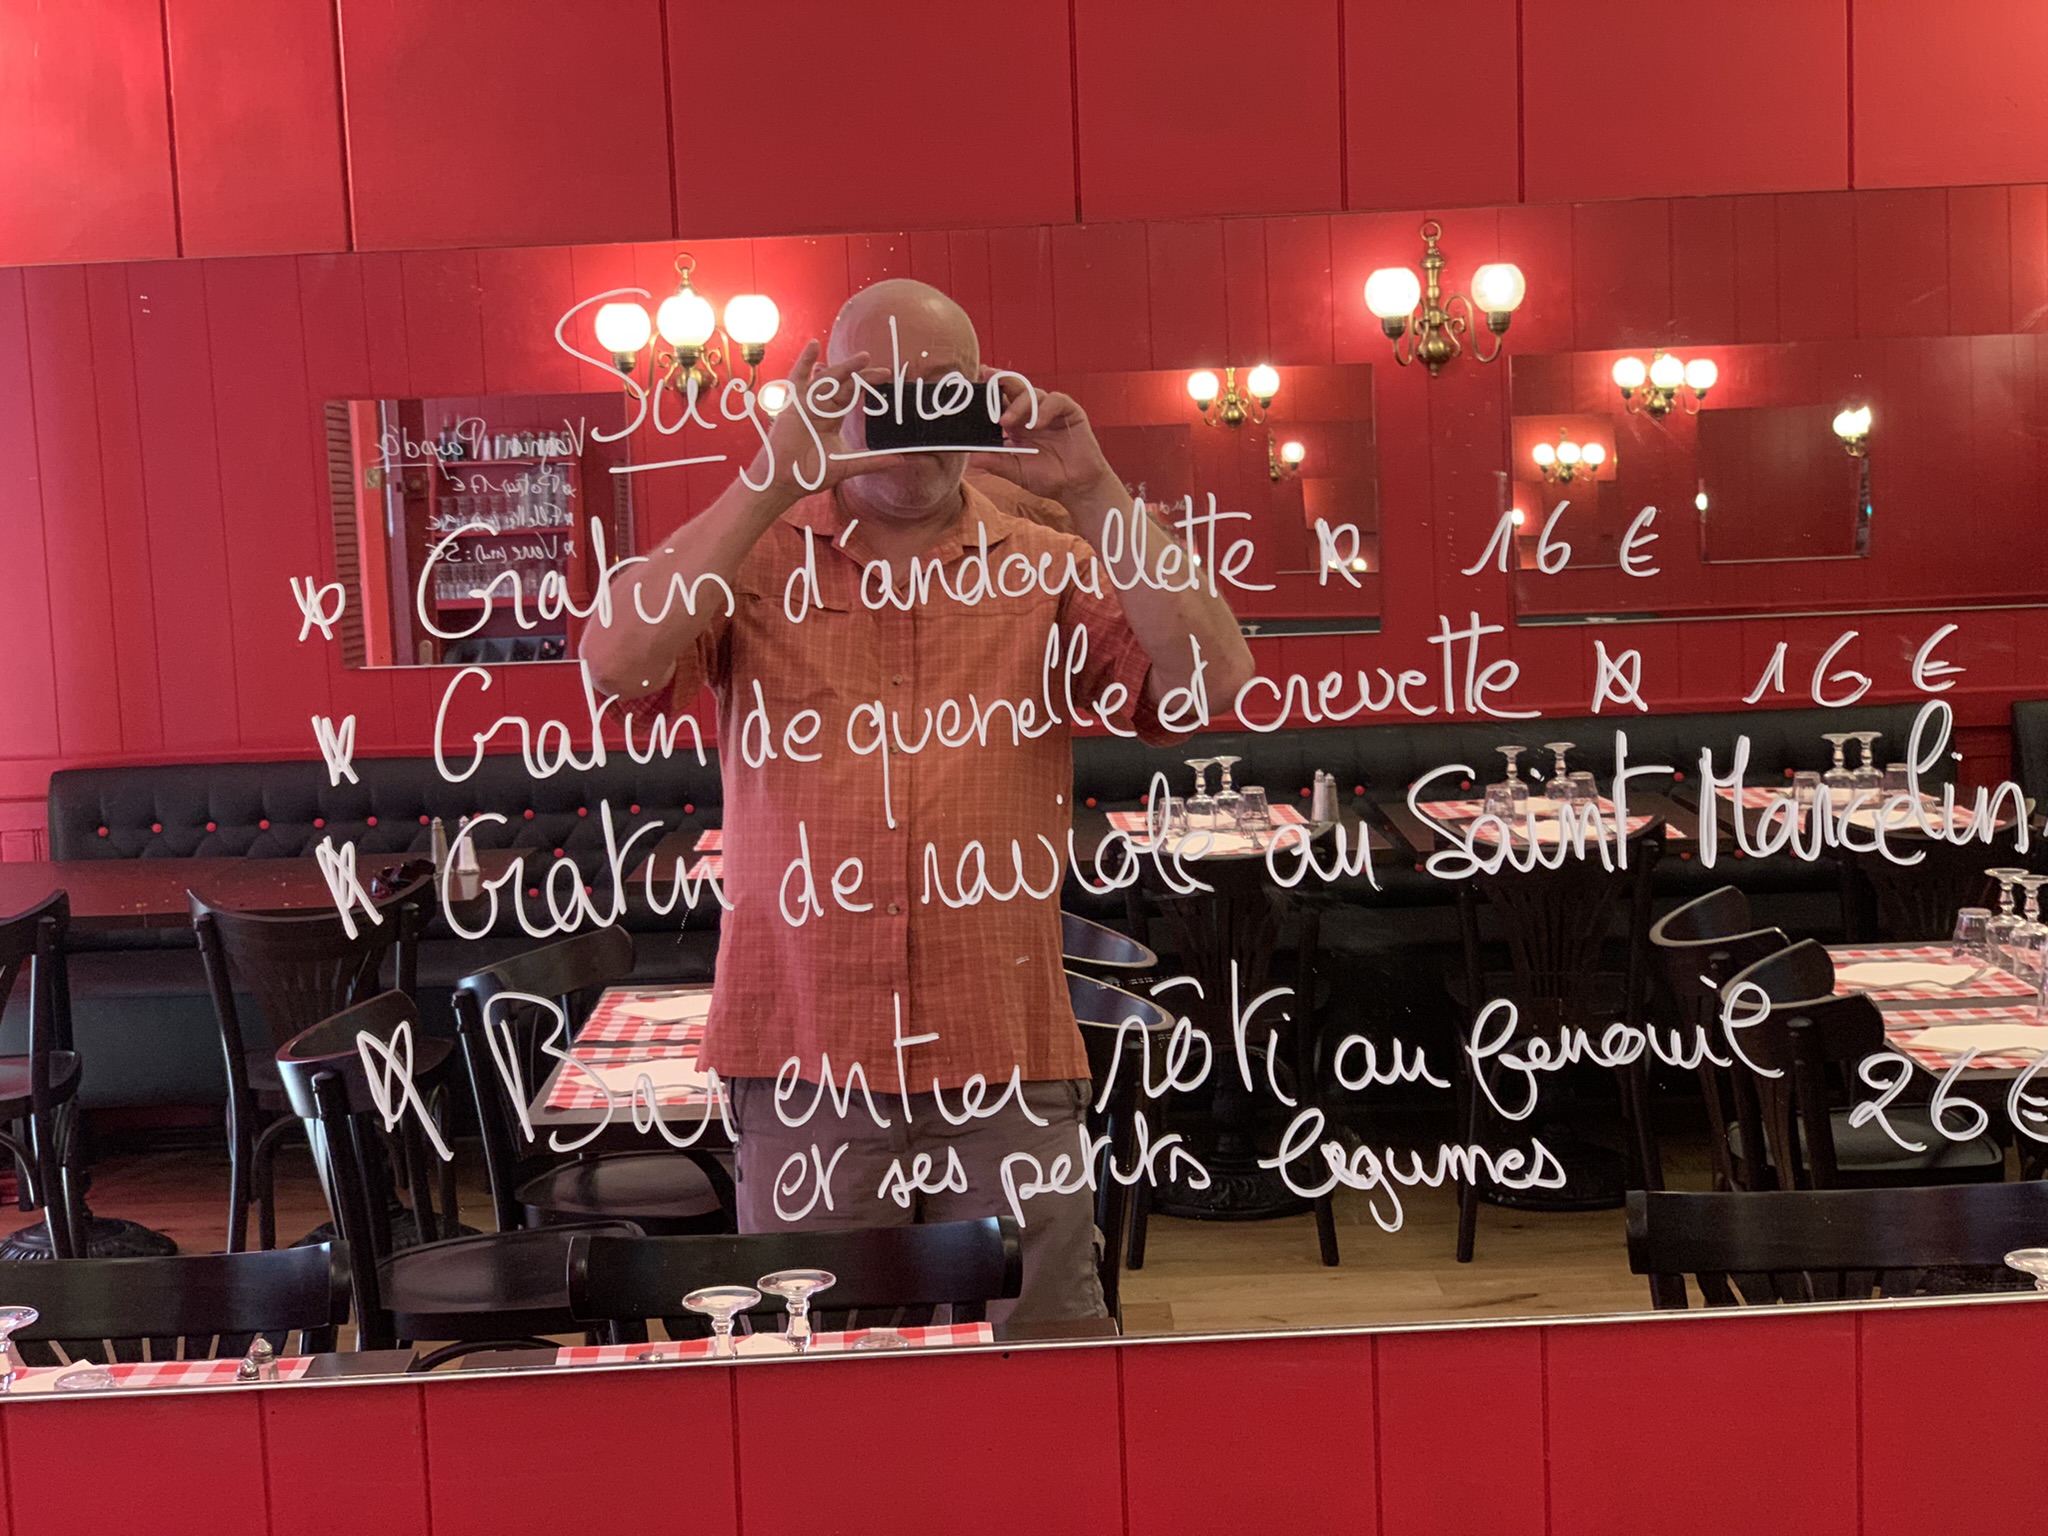 Suggestion
Gratin d'andouillette 16 €
Gratin de quenelle et crevette 16 €
Gratin de raviole au Saint Marcelin
Bar entier rôti au fenouil 26 €
et ses petits légumes
Viognier Pays d'Oc
Verre (md) : 5€